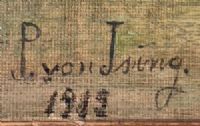 P. von Ising.
1913